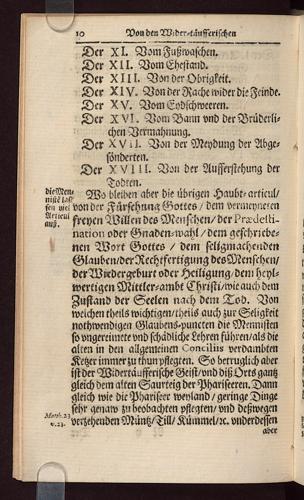 10 Von den Wider-täufferischen
Der XI. Vom Fußwaschen.
Der XII. Vom Ehestand.
Der XIII. Von der Obrigkeit.
Der XIV. Von der Rache wider die Feinde.
Der XV. Vom Eydschweeren.
Der XVI. Vom Bann und der Brüderli-
chen Vermahnung.
Der XVII. Von der Meydung der Abge-
sönderten.
Der XVIII. Von der Aufferstehung der
Todten.
die Men-
nisten las-
sen viel
Articul
auß.
Wo bleiben aber die übrigen Haubt-articul/
von der Fürsehung Gottes/ dem vermeyneten
freyen Willen des Menschen/ der Prædesti-
nation oder Gnaden-wahl/ dem geschriebe-
nen Wort Gottes/ dem seligmachenden
Glauben/ der Rechtfertigung des Menschen/
der Wiedergeburt oder Heiligung/ dem heyl-
wertigen Mittler-ambt Christi/ wie auch dem
Zustand der Seelen nach dem Tod. Von
welchen theils wichtigen/ theils auch zur Seligkeit
nothwendigen Glaubens-puncten die Mennisten
so ungereimte und schädliche Lehren führen/ als die
alten in den allgemeinen Conciliis verdambten
Ketzer immer zu thun pflegten. So betruglich aber
ist der Widertäufferische Geist/ und diß Orts gantz
gleich dem alten Saurteig der Phariseeren. Dann
gleich wie die Phariseer weyland/ geringe Dinge
sehr genaw zu beobachten pflegten/ und deßwegen
Matth. 23
v. 23.
verzehenden Müntz/ Till/ Kümmel/ ꝛc. underdessen
aber